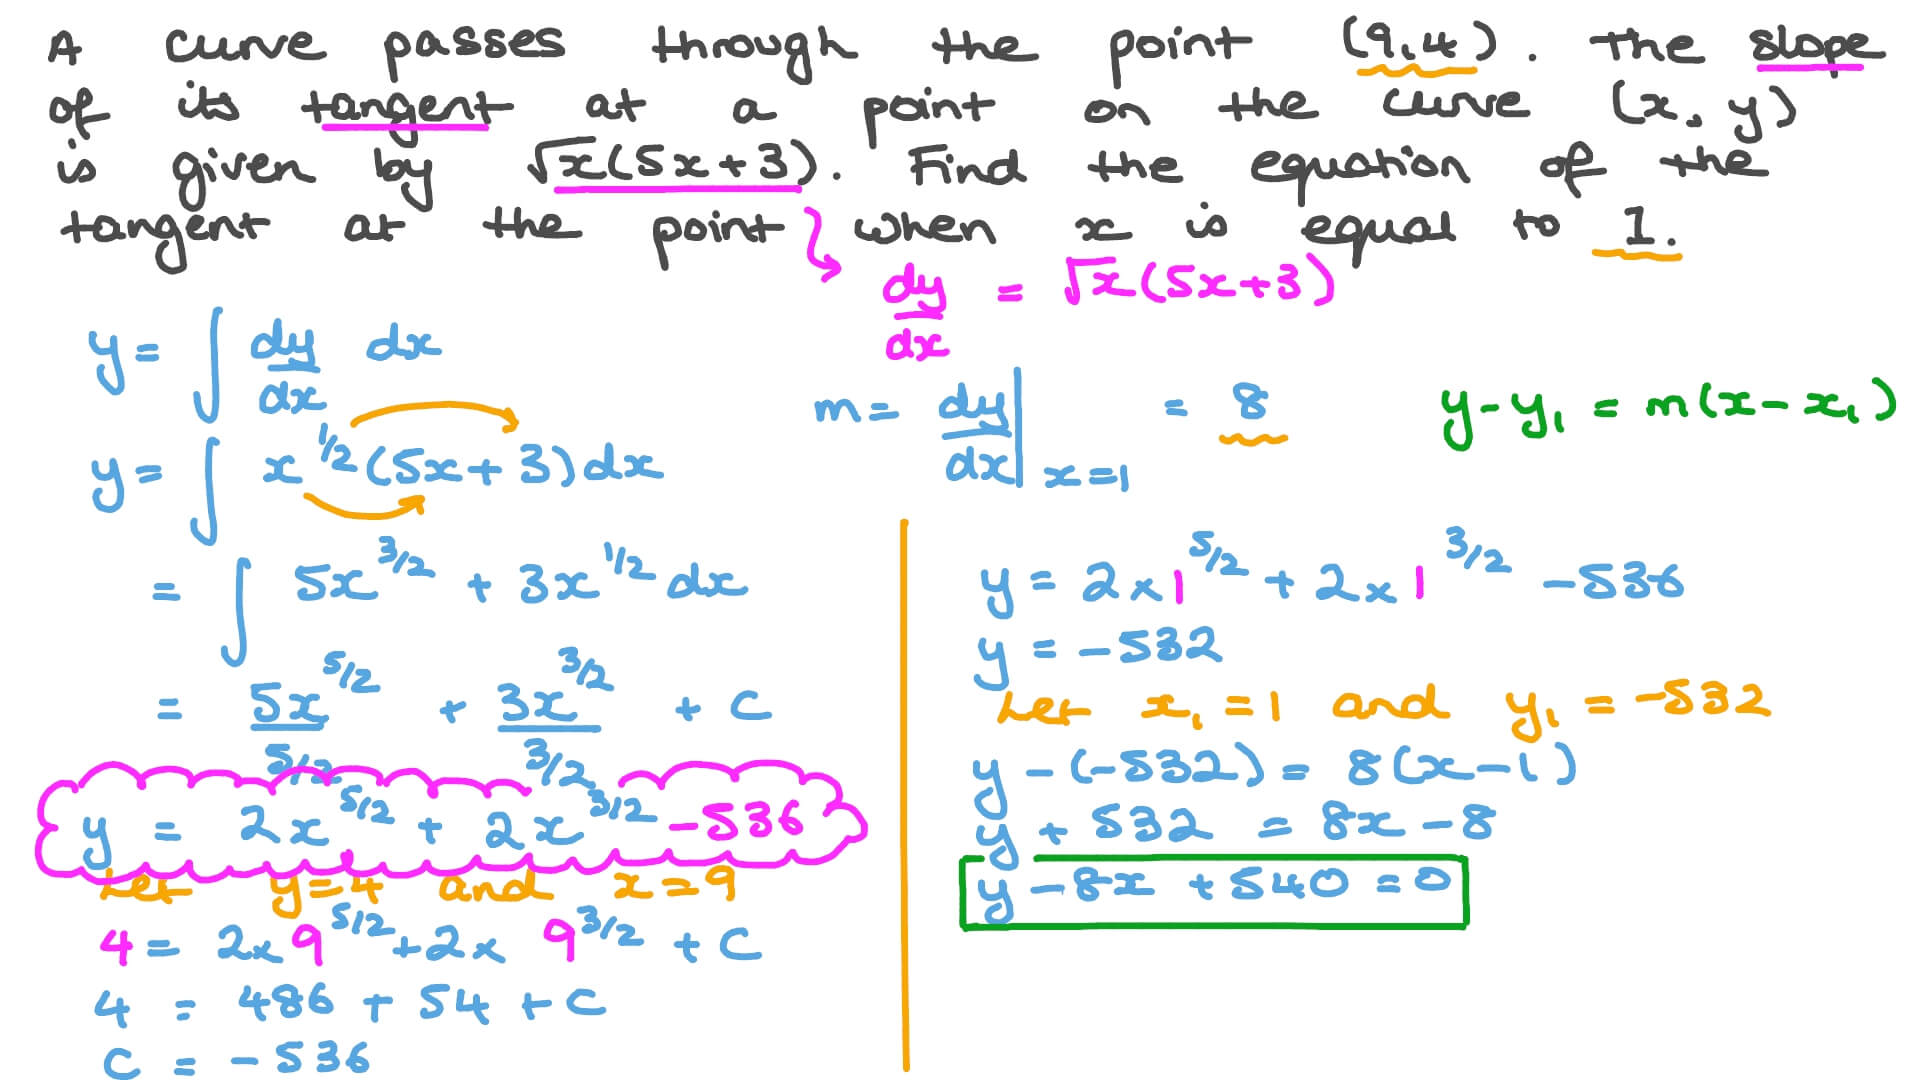 A curve passes through the point (9,4). The slope
of its tangent at a point on the curve (x, y)
is given by √x(5x+3). Find the equation of the
tangent at the point when x is equal to 1.
dy/dx = √x(5x+3)
y = ∫ dy/dx dx
y = ∫ x^1/2 (5x+3) dx
= ∫ 5x^3/2 + 3x^1/2 dx
= 5x^5/2 / 5/2 + 3x^3/2 / 3/2 + C
y = 2x^5/2 + 2x^3/2 -536
Let y=4 and x=9
4 = 2x 9^5/2 + 2x 9^3/2 + C
4 = 486 + 54 + C
C = -536
m = dy/dx | x=1 = 8
y-y₁ = m(x-x₁)
y = 2x1^5/2 + 2x1^3/2 -536
y = -532
Let x₁=1 and y₁=-532
y-(-532) = 8(x-1)
y + 532 = 8x - 8
y - 8x + 540 = 0